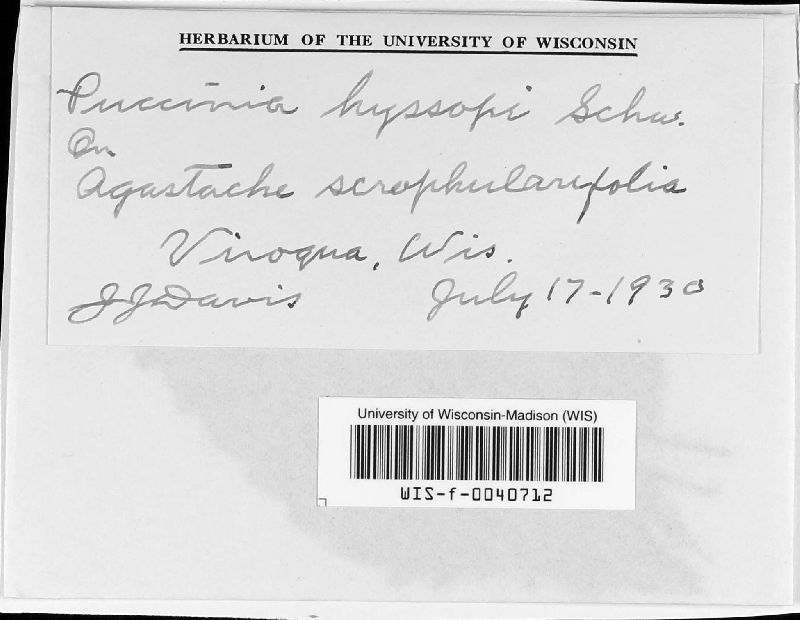 HERBARIUM OF THE UNIVERSITY OF WISCONSIN
Puccinia hyssopi Schw.
On
Agastache scrophulariifolia
Viroqua, Wis.
J J Davis July 17-1930
University of Wisconsin-Madison (WIS)
WIS-f-0040712